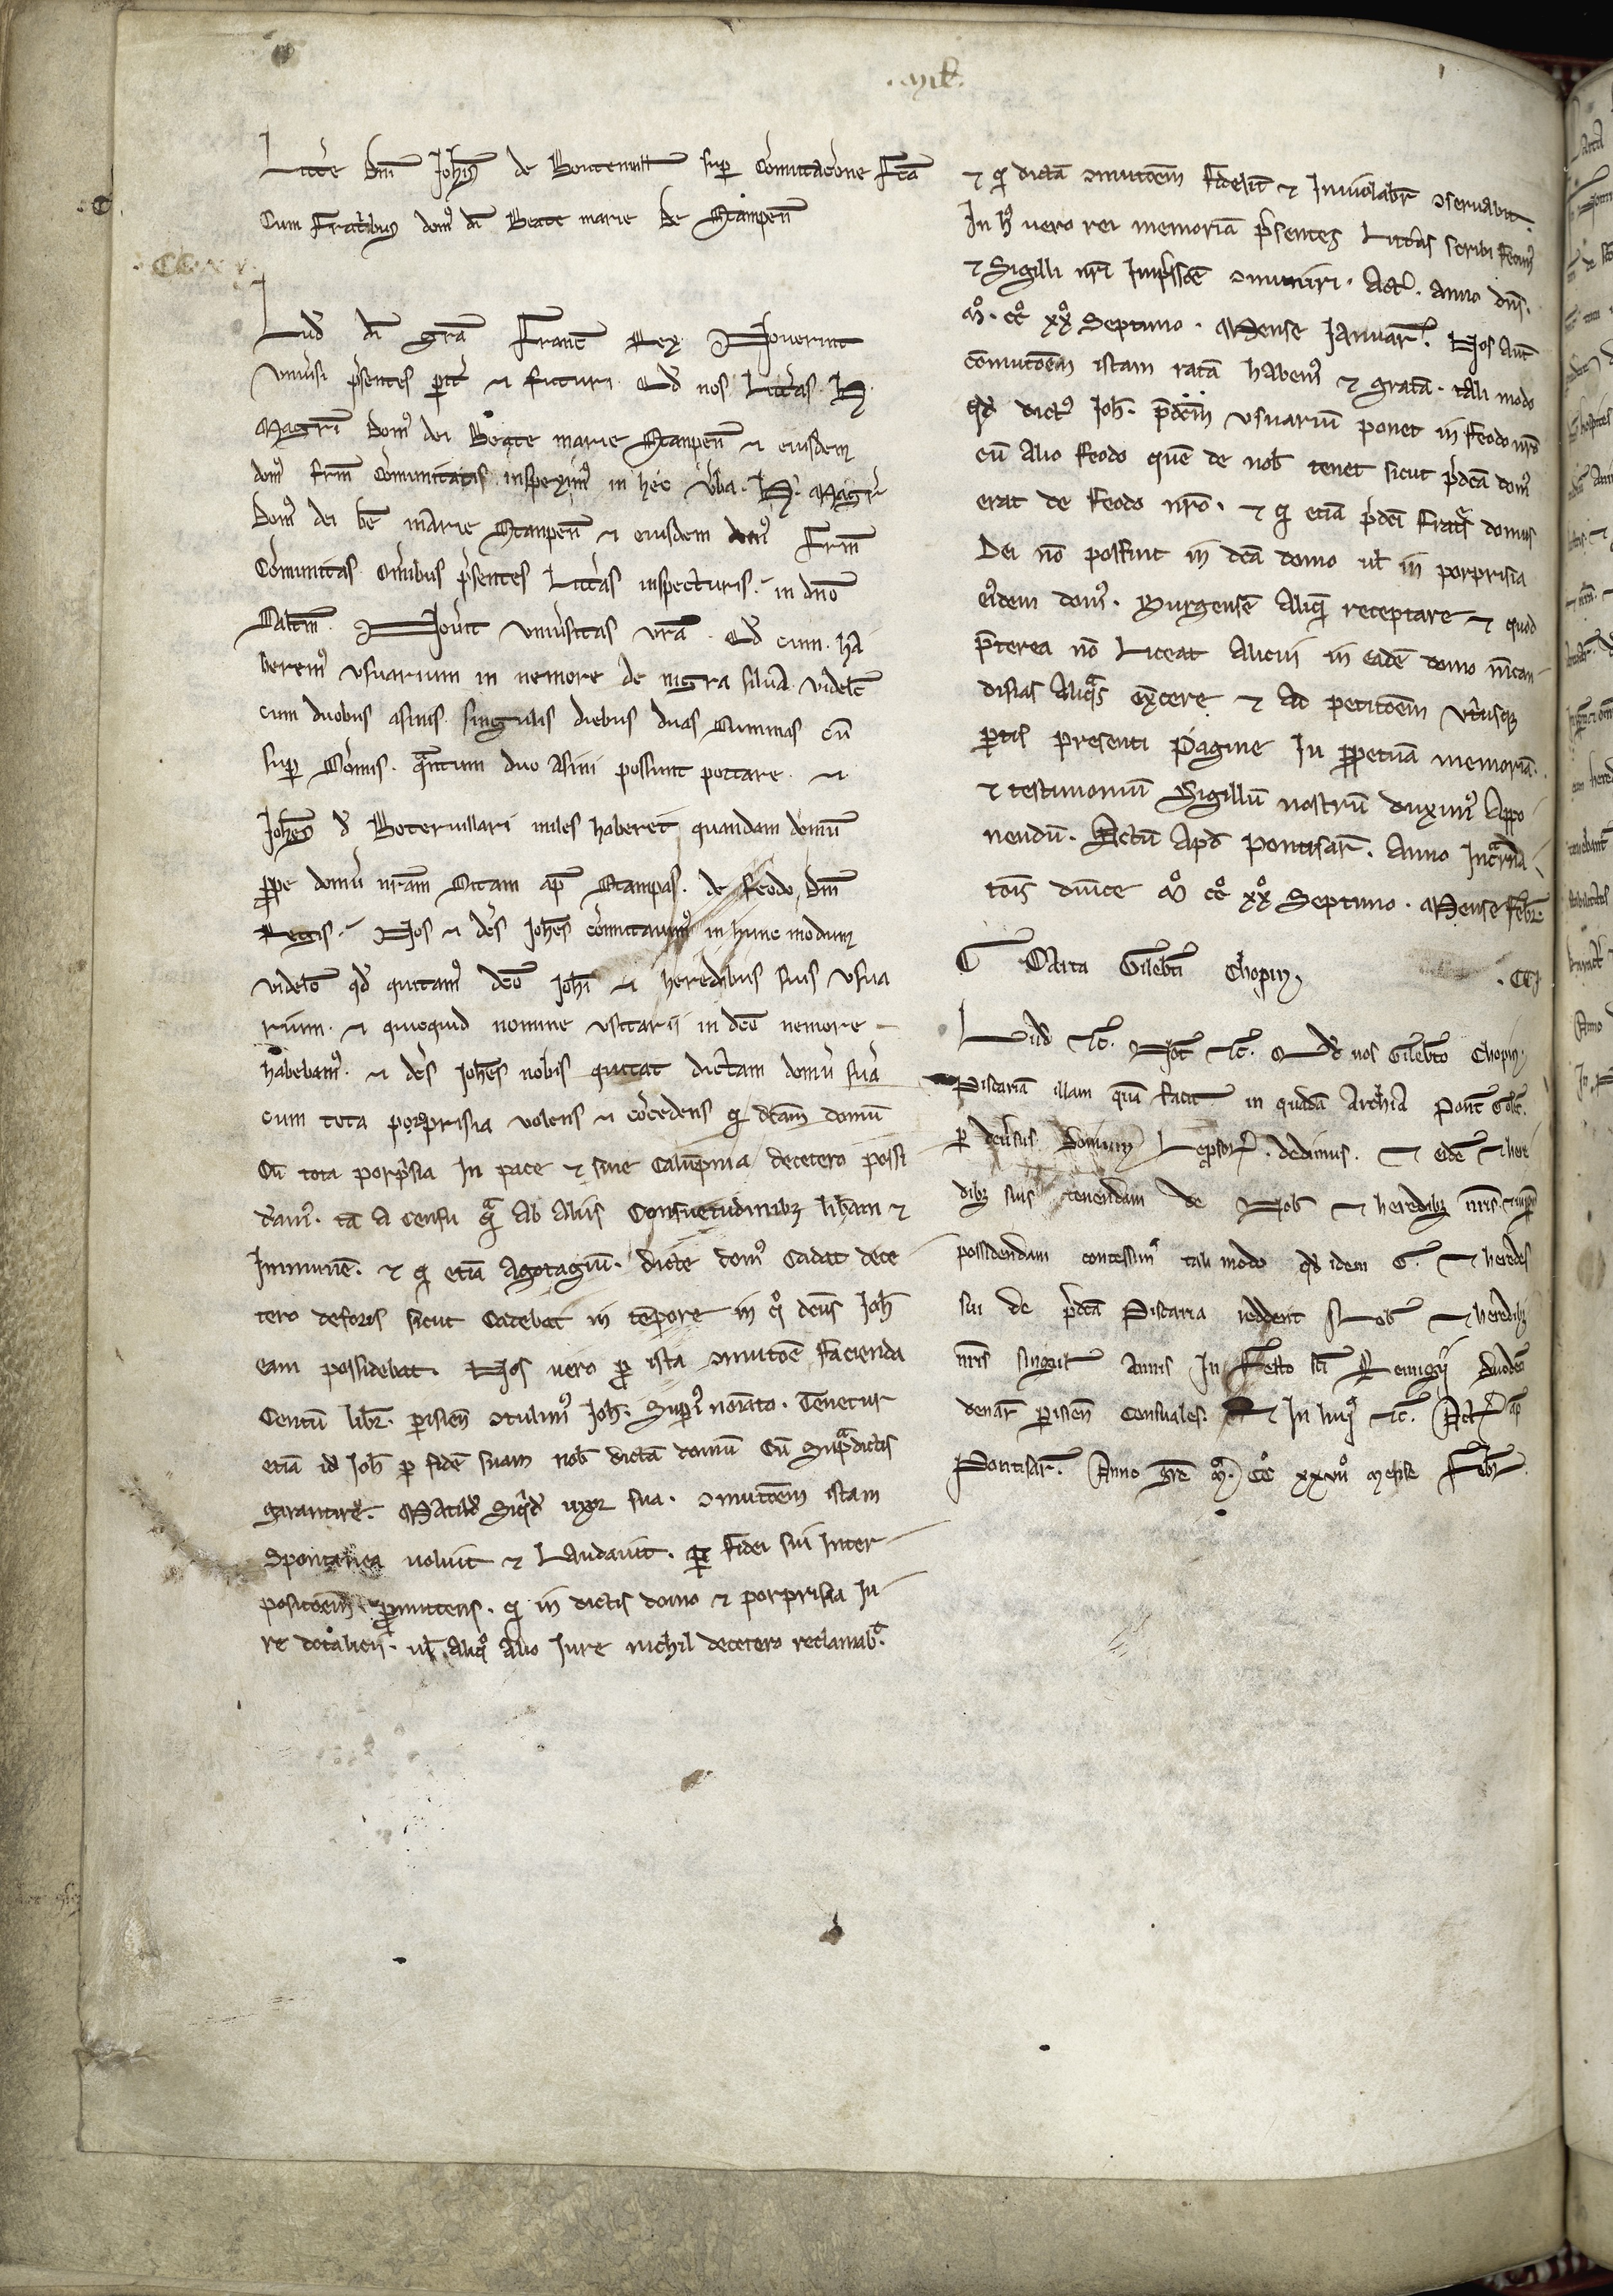 .mil.
Litt'e dn̄i Joh̄is de Boutervill' sup cōmutac̄one fc̄a
Cum Frat'ibus dom' dī Beate marie de Stampen̄
.CC.xv.
Lud' dī grā Franc̄ Rex. Noverint
Univ'si p'sentes pit' et futuri. Qd' nos Litt'as H.
Magr̄i Dom' dei Beate marie Stanpen̄ et eiusdem
dom' fr̄m cōmunitatis inspexim' in hec v'ba. H. Magr̄
Dom' dei bē marie Stanpen̄ et eiusdem dom' Fr̄m
Cōmunitas. Om̄ibus p'sentes Litt'as inspecturis. in dn̄o
Salt̄m. Nov'it univ'sitas vr̄a. Qd' cum ha
berem' usuarium in nemore de nigra silva. videlt̄
cum duobus asinis singulis diebus duas Summas cū
sup Somis. q̄ntum duo asini possunt portare. et
Joh̄es d' Botervillari miles haberet quandam domū
p̄pe domū nr̄am sitam ap̄ Stampas. de feodo dn̄i
Regis. Nos et dc̄s Joh̄es cōmutavim' in hunc modum
videlt̄ qd' quitam' dc̄o Joh̄i et heredibus suis usua
rium. et quicquid nomine usuarii in dc̄o nemore
habebam'. et dc̄s Joh̄es nobis quitat dictam domū suā
cum tota porprisia volens et cōcedens q' dc̄am domū
Cū tota porp'sia In pace et sine calūpnia decetero possi
deam'. tā a censu q̄ ab aliis Consuetudinib; lib'am et
Immunē. et q' etiā Agotagiū. dicte dom' cadat dece
tero deforis sicut cadebat in tēpore in q° dc̄us Joh̄
eam possidebat. Nos vero p ista ɔmutōe facienda
Centū libr̄. p̄isien̄ ɔtulim' Joh̄. Sup'i' noīato. Tenetur
etiā id' Joh̄ p fidē suam nob̄ dictā domū Cū Sup̄dictis
garantire. Matild' Siq'd' uxor sua. ɔmutōem istam
Spontanea voluit et Laudavit. p fidei sui Inter
positōem p̄mittens. q' in dictis domo et porprisia Ju
re dotalicii. ul̄ aliq° alio Jure nichil decetero reclamab̄.
et q' dictā ɔmutōem fidelit̄ et Inviolabr̄ ɔservabit.
In h' vero rei memoriā p'sentes Litt'as scribi fecim'
et Sigilli nr̄i Imp'ssōe ɔmuniri. Act'. anno dn̄i.
m°. cc° xx° Septimo. Mense Januar̄. Nos aut̄
cōmutōem istam ratā habem' et gratā. tali modo
qd' dict' Joh̄. p̄dc̄m usuariū ponet in feodo nr̄o
cū alio feodo quē de nob̄ tenet sicut p'dc̄a dom'
erat de feodo nr̄o. et q' etiā p'dc̄i fratres domus
Dei nō possint in dc̄a domo ul̄ in porprisia
ei'dem dom'. Burgensē aliq̄ receptare et quod
p̄terea nō Liceat alicui in eadē domo m'can
disias aliq̄s ex'cere et ad petitōem ut'usq;
p̄tis presenti Pagine In p̄petuā memoriā.
et testimoniū Sigillū nostrū duxim' Appo
nendū. Actū apd' Pontisar̄. Anno Incarna
tōis divīce m° cc° xx° Septimo. Mense febr̄
C Carta Gileb'ti Chopin.
.CC
Lud' etc̄. Not̄ etc̄. Qd' nos Gileb'to Chopin
Piscariā illam quā facit in quadā Archiā Pont'
p deu'sus Domum Lep'sor'. dedimus. Et eidē et here
dib; suis tenendam de Nob̄ et heredib; nr̄is.
possidendam concessim' tali modo qd' idem G. et heredes
sui de p'dc̄a Piscaria reddent Nob̄ et heredib;
nr̄is singul' annis In festo sc̄i Remigii duodeci
denar̄ p̄isien̄ Censuales. Et In huj' etc̄. Act' ap̄
Pontisar̄. Anno gr̄e m°. cc° xxvii° mense Febr̄.